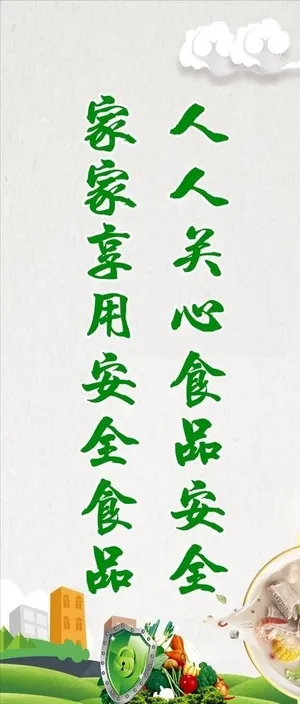 人人关心食品安全
家家享用安全食品